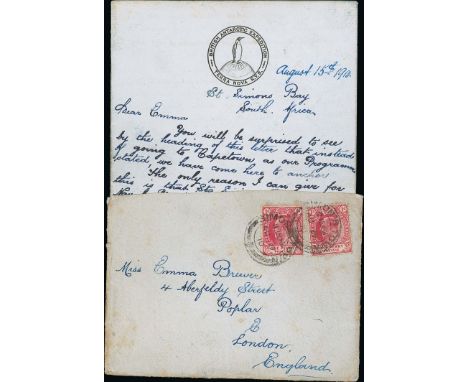 BRITISH ANTARCTIC EXPEDITION
TERRA NOVA R.Y.S.
August 15th 1910
St. Simons Bay
South Africa
Dear Emma
You will be surprised to see
by the heading of this letter that instead
of going to Capetown as our Programme
stated we have come here to anchor
The only reason I can give for
this is that
Miss Emma Brewer
4 Aberfeldy Street
Poplar
E
London
England